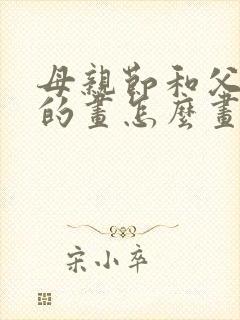 母親節和父
的畫怎麼畫
宋小卒